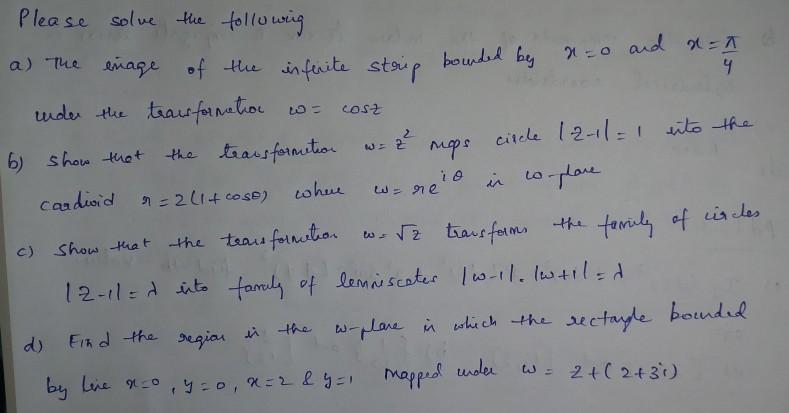 Please solve the following
a) The image of the infinite strip bounded by x = 0 and x = π/4
under the transformation w = cosz
b) Show that the transformation w = z² maps circle |z-1| = 1 into the
cardioid r = 2(1+cosθ) where w = re^{iθ} in w-plane
c) Show that the transformation w = √z transforms the family of circles
|z-1| = λ into family of lemniscates |w-1|.|w+1| = λ
d) Find the region in the w-plane in which the rectangle bounded
by line x=0, y=0, x=2 & y=1 mapped under w = z+(2+3i)